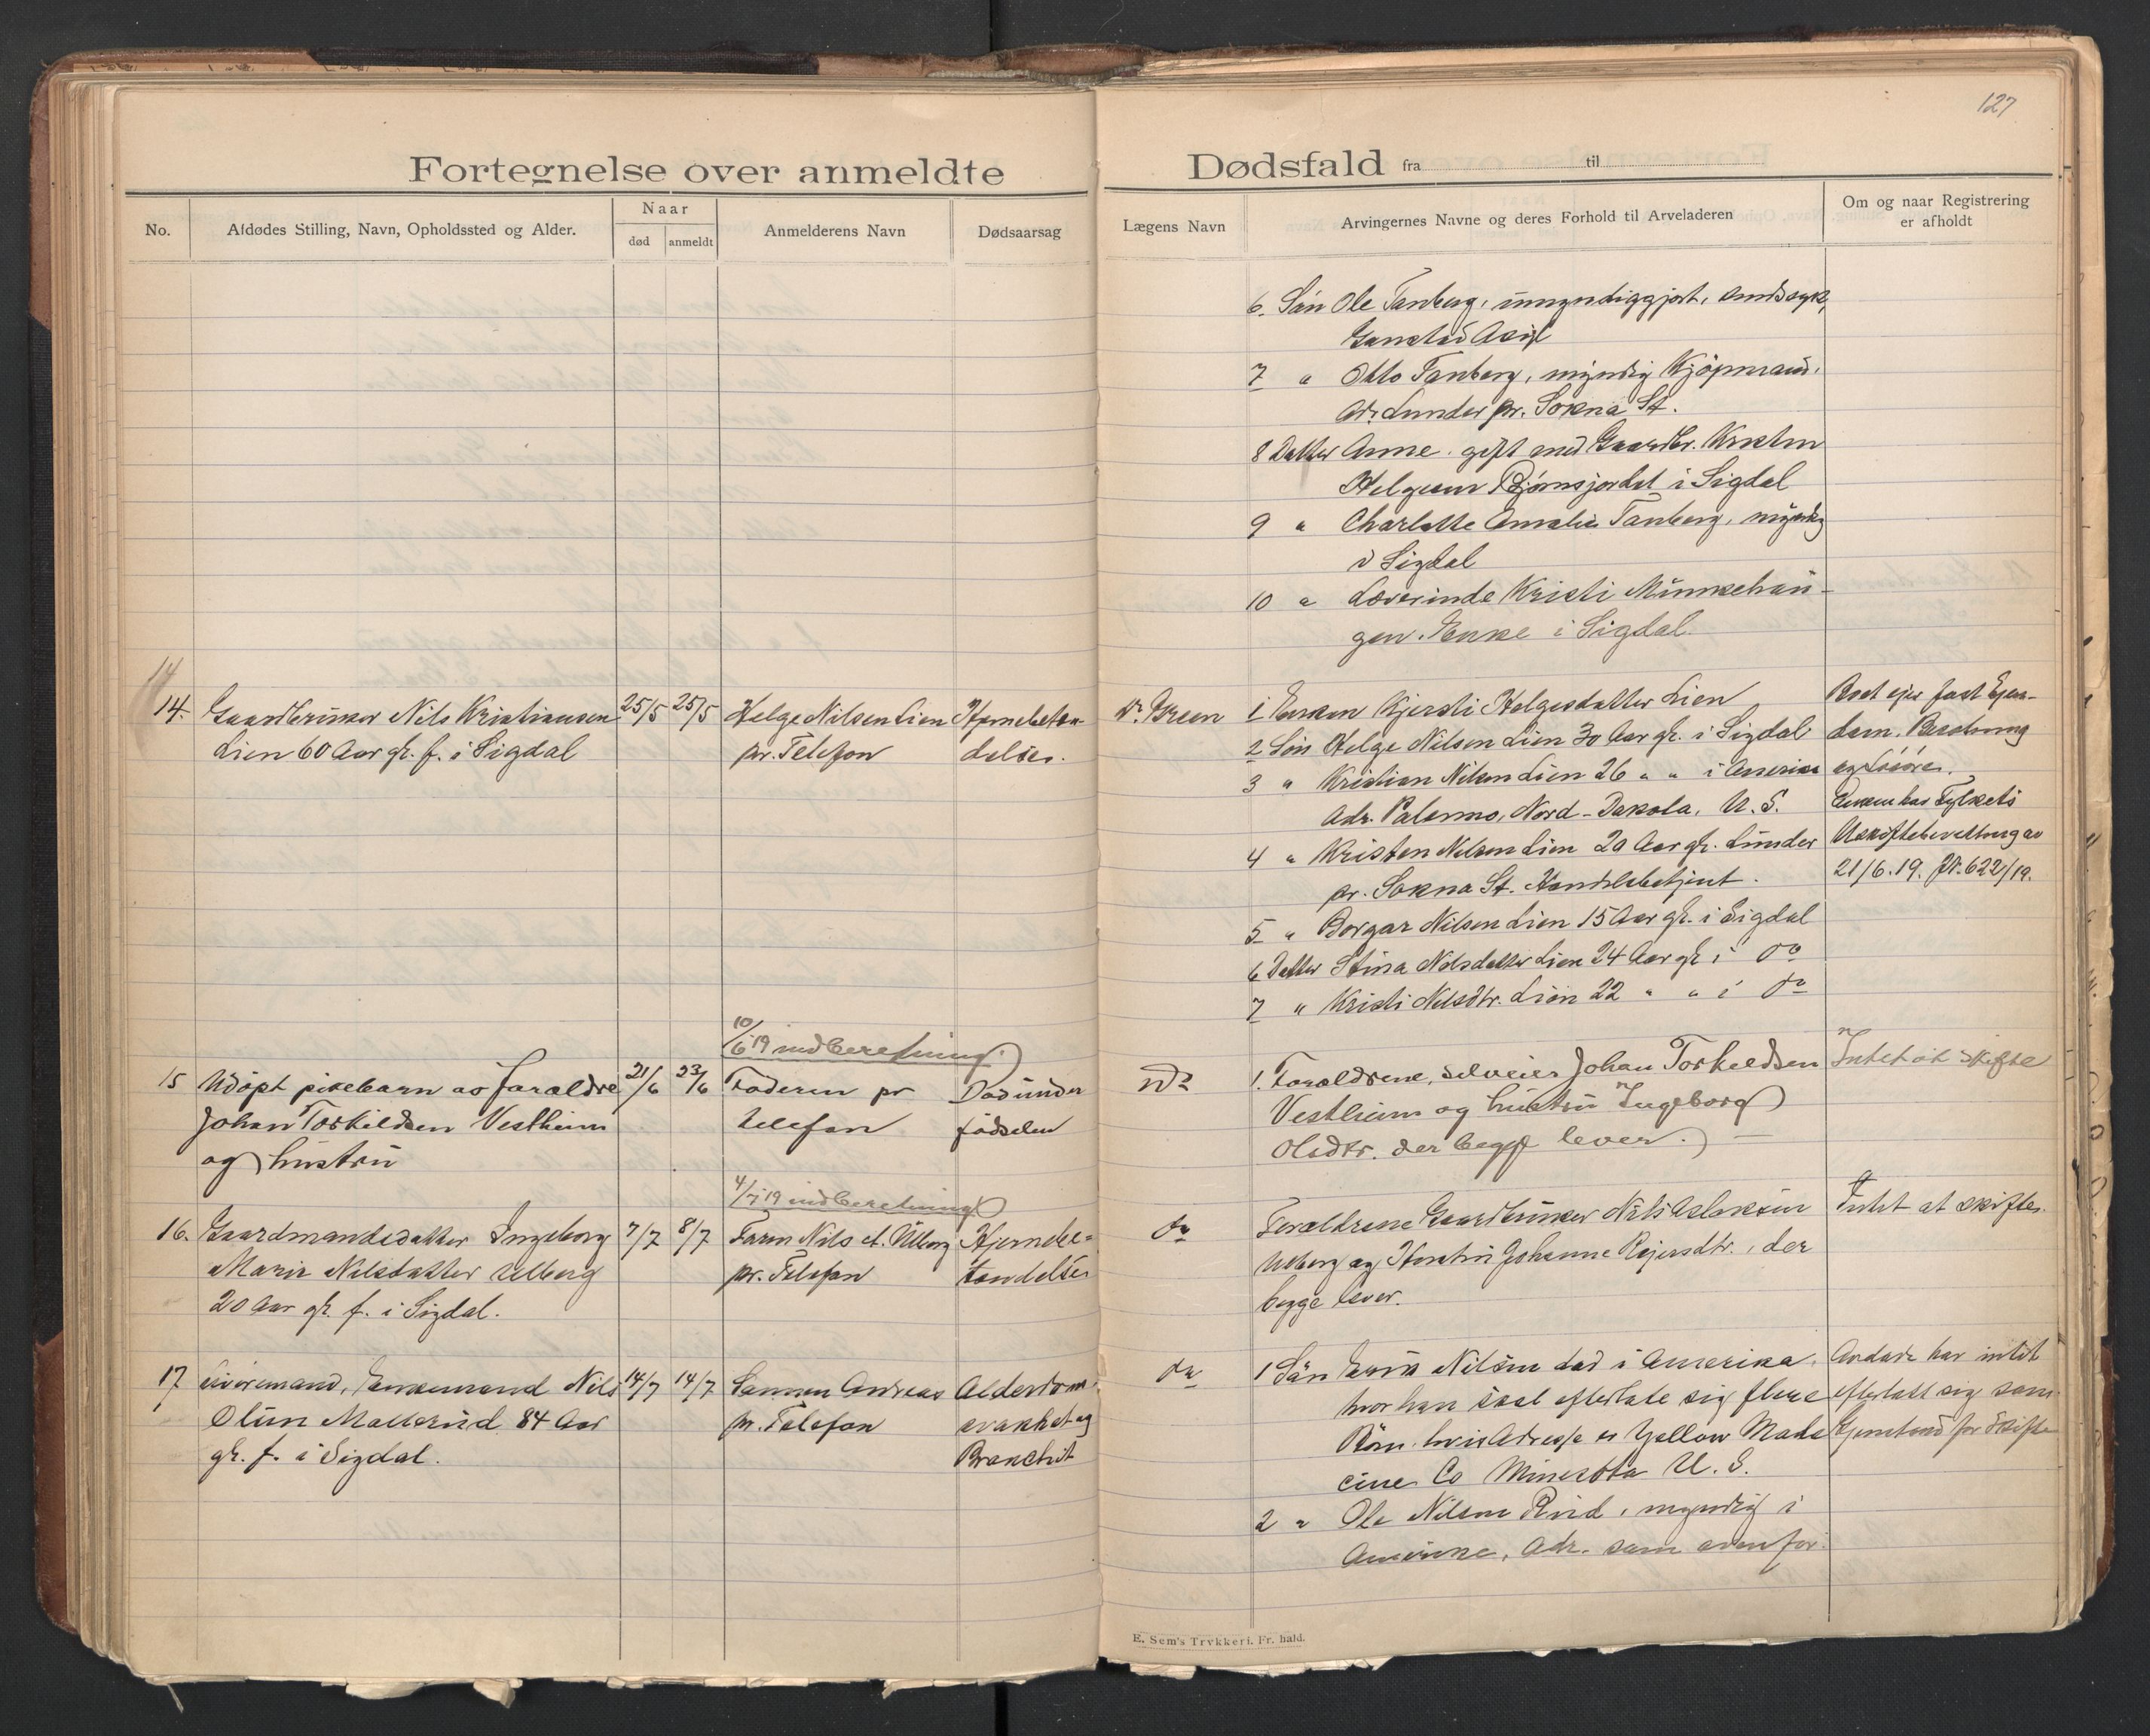 127
Fortegnelse over anmeldte Dødsfald fra til
No.
Afdødes Stilling, Navn, Opholdssted og Alder.
Naar
død anmeldt
Anmelderens Navn
Dødsaarsag
Lægens Navn
Arvingernes Navne og deres Forhold til Arveladeren
Om og naar Registrering
er afholdt
6. Søn Ole Tanberg, umyndiggjort, sindssyk,
Asyl
7 " Otto Tanberg, myndig Kjøpmand.
Adr. Lunder pr. Sokna St.
8 Datter Anne gift med Gaardbr. Kristen
Helgesen Bjørnsjordet i Sigdal
9 " Charlotte Amalie Tanberg, myndig
i Sigdal
10 " Lærerinde Kristi Munkehau-
gen. Enke i Sigdal.
14
14. Gaardbruker Nils Kristiansen
Lien 60 Aar gl. f. i Sigdal
25/5 25/5
Helge Nilsen Lien
pr. Telefon
Hjernebetæn-
delse.
Dr. Breen
1 Enken Kjersti Helgesdatter Lien
2 Søn Helge Nilsen Lien 30 Aar gl. i Sigdal
3 " Kristian Nilsen Lien 26 " " i Amerika
Adr. Palermo, Nord-Dakota, U. S.
4 " Kristen Nilsen Lien 20 Aar gl. Lunder
pr. Sokna St. Handelsbetjent.
5 " Borgar Nilsen Lien 15 Aar gl. i Sigdal
6 Datter Stina Nilsdatter Lien 24 Aar gl i do
7 " Kristi Nilsdtr. Lien 22 " " i do
Boet ejer fast Ejen-
dom, Besetning
og Løsøre.
Enken har Fylkets
Uskiftebevilling av
21/6.19. Jr. 622/19.
10/6 19 indberetning
15 Udøpt pikebarn av forældre
Johan Torkildsen Vestheim
og hustru
21/6 23/6
Faderen pr
telefon
Død under
fødselen
Do
1. Forældrene, selveier Johan Torkildsen
Vestheim og hustru Ingeborg
Olsdtr. der begge lever. —
Intet at skifte
4/7 19 indberetning
16. Gaardmandsdatter Ingeborg
Marie Nilsdatter Ulberg
20 Aar gl. f. i Sigdal.
7/7 8/7
Faren Nils A. Ulberg
pr. Telefon
Hjernebe-
tændelse
do
Forældrene Gaardbruker Nils Aslaksen
Ulberg og Hustru Johanne Reiersdtr., der
begge lever.
Intet at skifte.
17 Livøremand, Enkemand Nils
Olsen Mallerud 84 Aar
gl. f. i Sigdal.
14/7 14/7
Sønnen Andreas
pr. Telefon
Alderdoms
svakhet og
Bronchit
do
1 Søn Nilsen død i Amerika,
hvor han skal efterlate sig flere
Børn. hvis Adresse er Yellow Made
cine Co Minesota U. S.
2 " Ole Nilsen Rud, myndig i
Amerika, Adr. som ovenfor.
Avdøde har intet
efterlatt sig som
Gjenstand for Skifte
E. Sem's Trykkeri. Fr. hald.